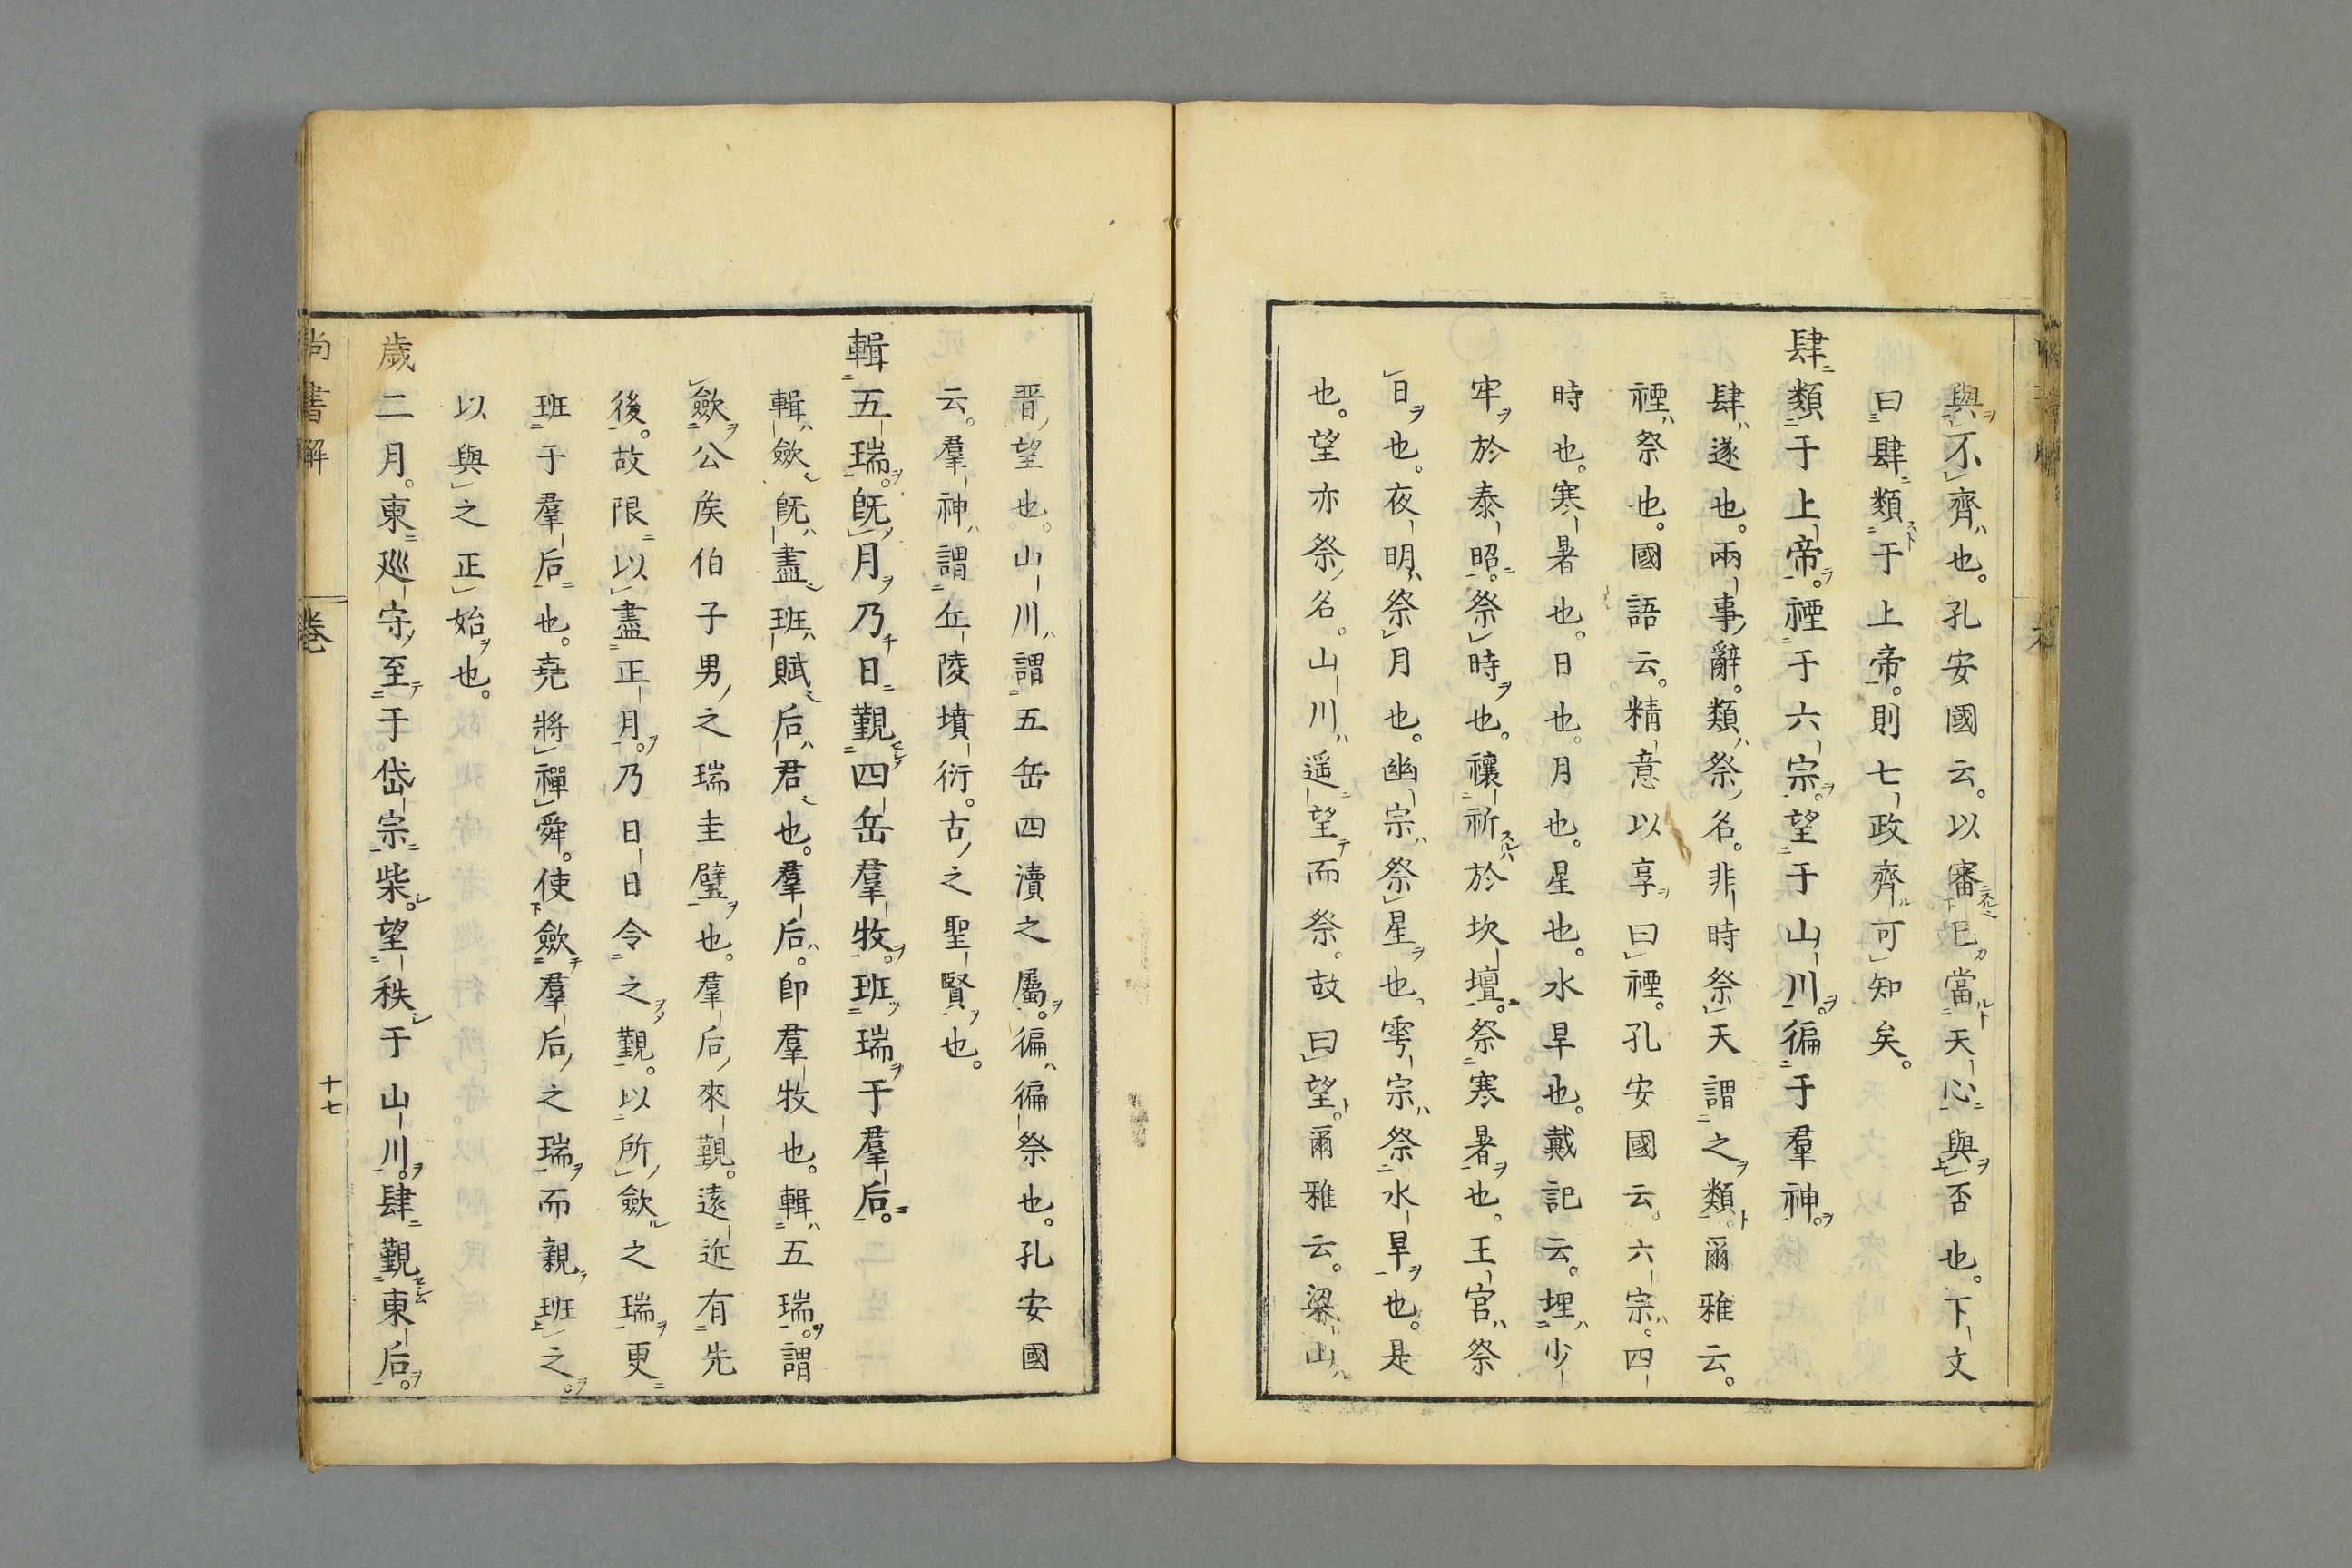 與不齊也。孔安國云。以審已當天心與否也。下文
曰肆類于上帝。則七政齊可知矣。
肆類于上帝。禋于六宗。望于山川。徧于羣神。
肆遂也。兩事辭。類祭名。非時祭天謂之類。爾雅云。
禋祭也。國語云。精意以享曰禋。孔安國云。六宗。四
時也。寒暑也。日也。月也。星也。水旱也。戴記云。埋少
牢於泰昭。祭時也。禳祈於坎壇。祭寒暑也。王宮祭
日也。夜明祭月也。幽宗祭星也。雩宗祭水旱也。是
也。望亦祭名。山川遥望而祭。故曰望。爾雅云。梁山
晋望也。山川謂五岳四瀆之屬。徧徧祭也。孔安國
云。羣神謂丘陵墳衍。古之聖賢也。
輯五瑞。既月乃日覲四岳羣牧。班瑞于羣后。
輯斂既盡班賦后君也。羣后。卽羣牧也。輯五瑞。謂
斂公矦伯子男之瑞圭璧也。羣后來覲。遠近有先
後。故限以盡正月。乃日日令之覲。以所斂之瑞更
班于羣后也。堯將禪舜。使斂羣后之瑞而親班之。
以與之正始也。
歲二月。東廵守至于岱宗柴。望秩于山川。肆覲東后。
尚書解 卷 十七